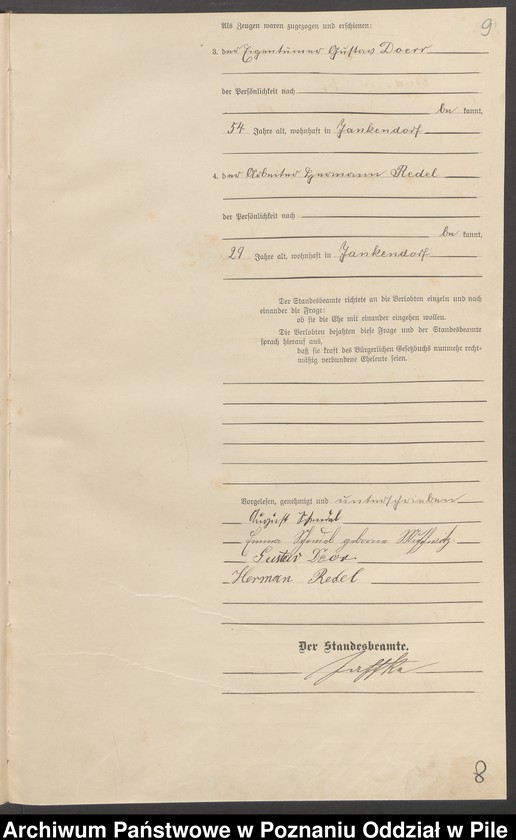 9
Als Zeugen waren zugezogen und erschienen:
3. der Eigentümer Gustav Doerr
der Persönlichkeit nach
be kannt,
54 Jahre alt, wohnhaft in Jankendorf
4. der Arbeiter Hermann Redel
der Persönlichkeit nach
be kannt,
29 Jahre alt, wohnhaft in Jankendorf
Der Standesbeamte richtete an die Verlobten einzeln und nach
einander die Frage:
ob sie die Ehe mit einander eingehen wollen.
Die Verlobten bejahten diese Frage und der Standesbeamte
sprach hierauf aus,
daß sie kraft des Bürgerlichen Gesetzbuchs nunmehr recht-
mäßig verbundene Eheleute seien.
Vorgelesen, genehmigt und unterschrieben
August Schendel
Emma Schendel geborene
Gustav
Herman Redel
Der Standesbeamte.
8
Archiwum Państwowe w Poznaniu Oddział w Pile